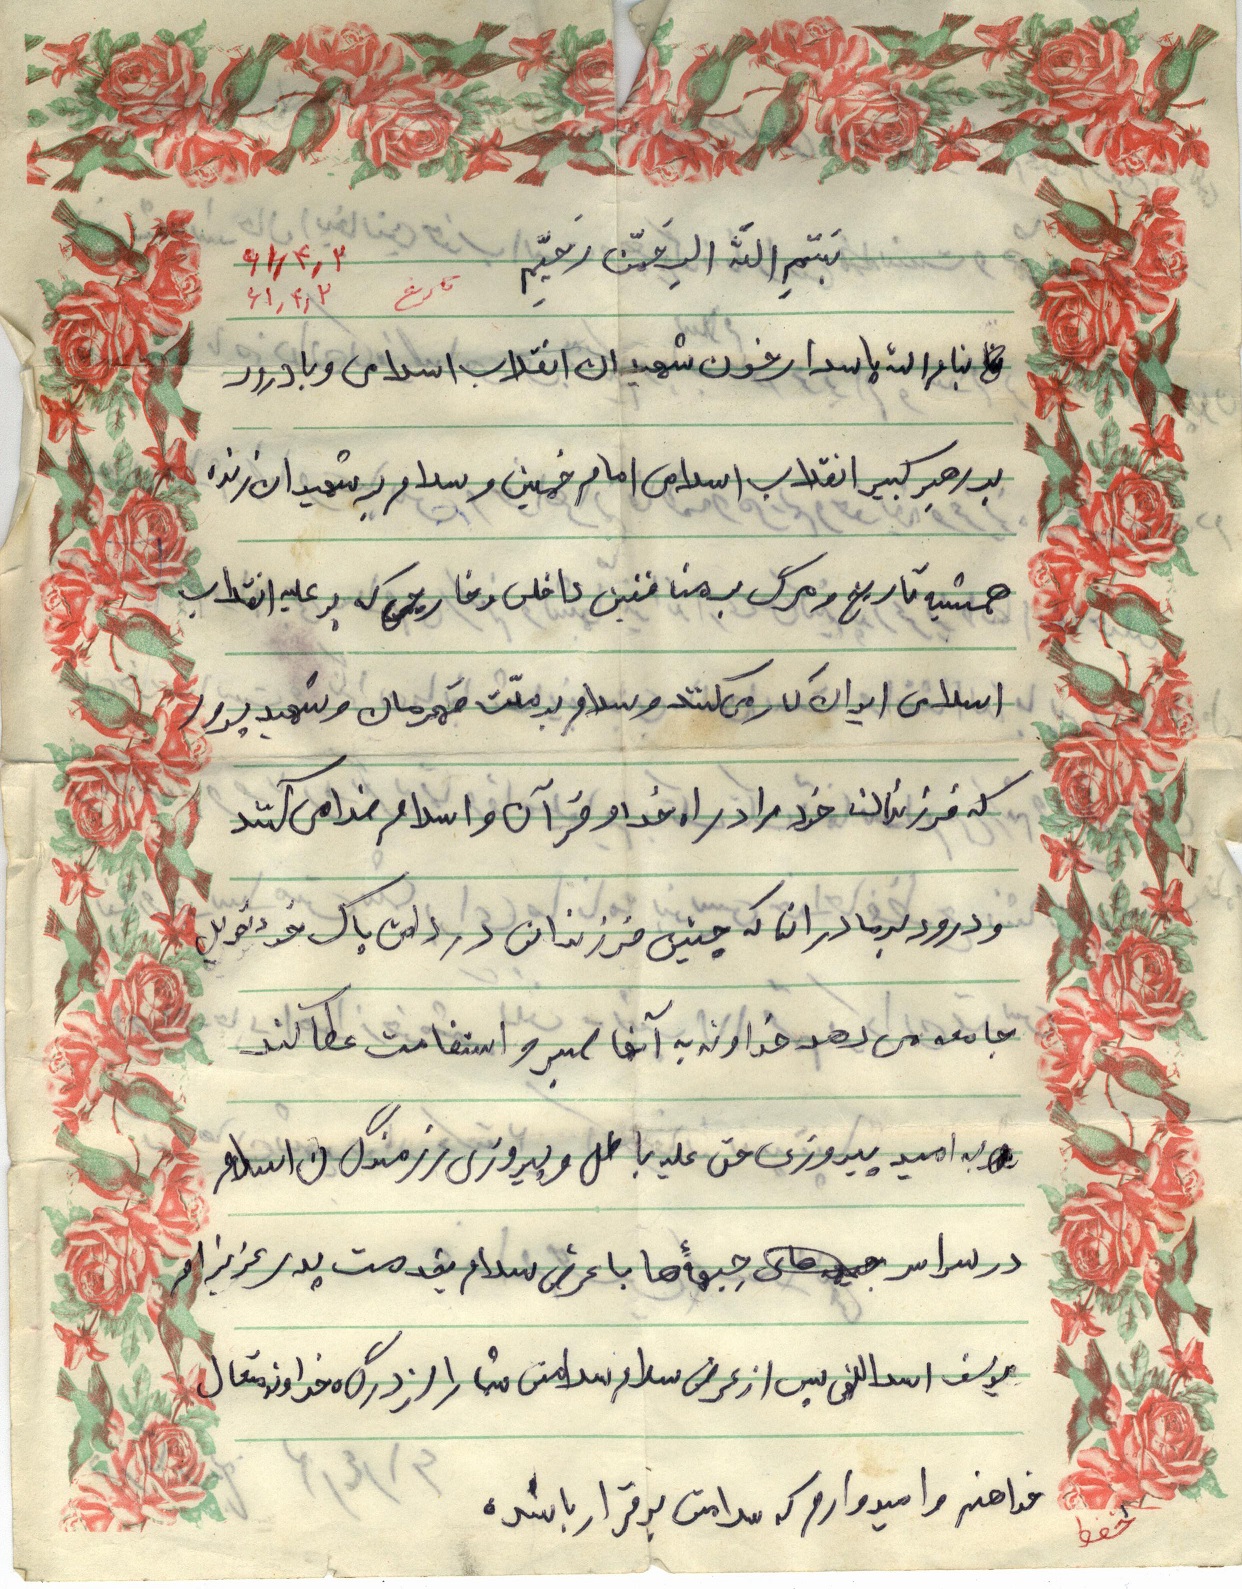 بسم الله الرحمن رحیم
۶۱/۴/۲
تاریخ ۶۱/۴/۲
بنام الله پاسدار خون شهیدان انقلاب اسلامی و با درود
بر رهبر کبیر انقلاب اسلامی امام خمینی و سلام بر شهیدان زنده
همشیه تاریخ و مرگ بر منافقین داخلی و خارجی که بر علیه انقلاب
اسلامی ایران کار می‌کنند و سلام بر ملّت قهرمان و شهید پرور
که فرزندانت خود را در راه خدا و قرآن و اسلام فدا می کنند
و درود بر مادرانی که چنین فرزندان در دامن پاک خود تحویل
جامعه می دهد خداوند به آنها صبر و استقامت عطا کند
به امید پیروزی حق علیه باطل و پیروزی رزمندگان اسلام
در سراسر جبهۀ‌ها با عرض سلام بخدمت پدر عزیزام
یوسف اسداللهی پس از عرض سلام سلامتی شما را از درگاه خداوند متعال
خواهنم و امیدوارم که سلامت برقرار باشده